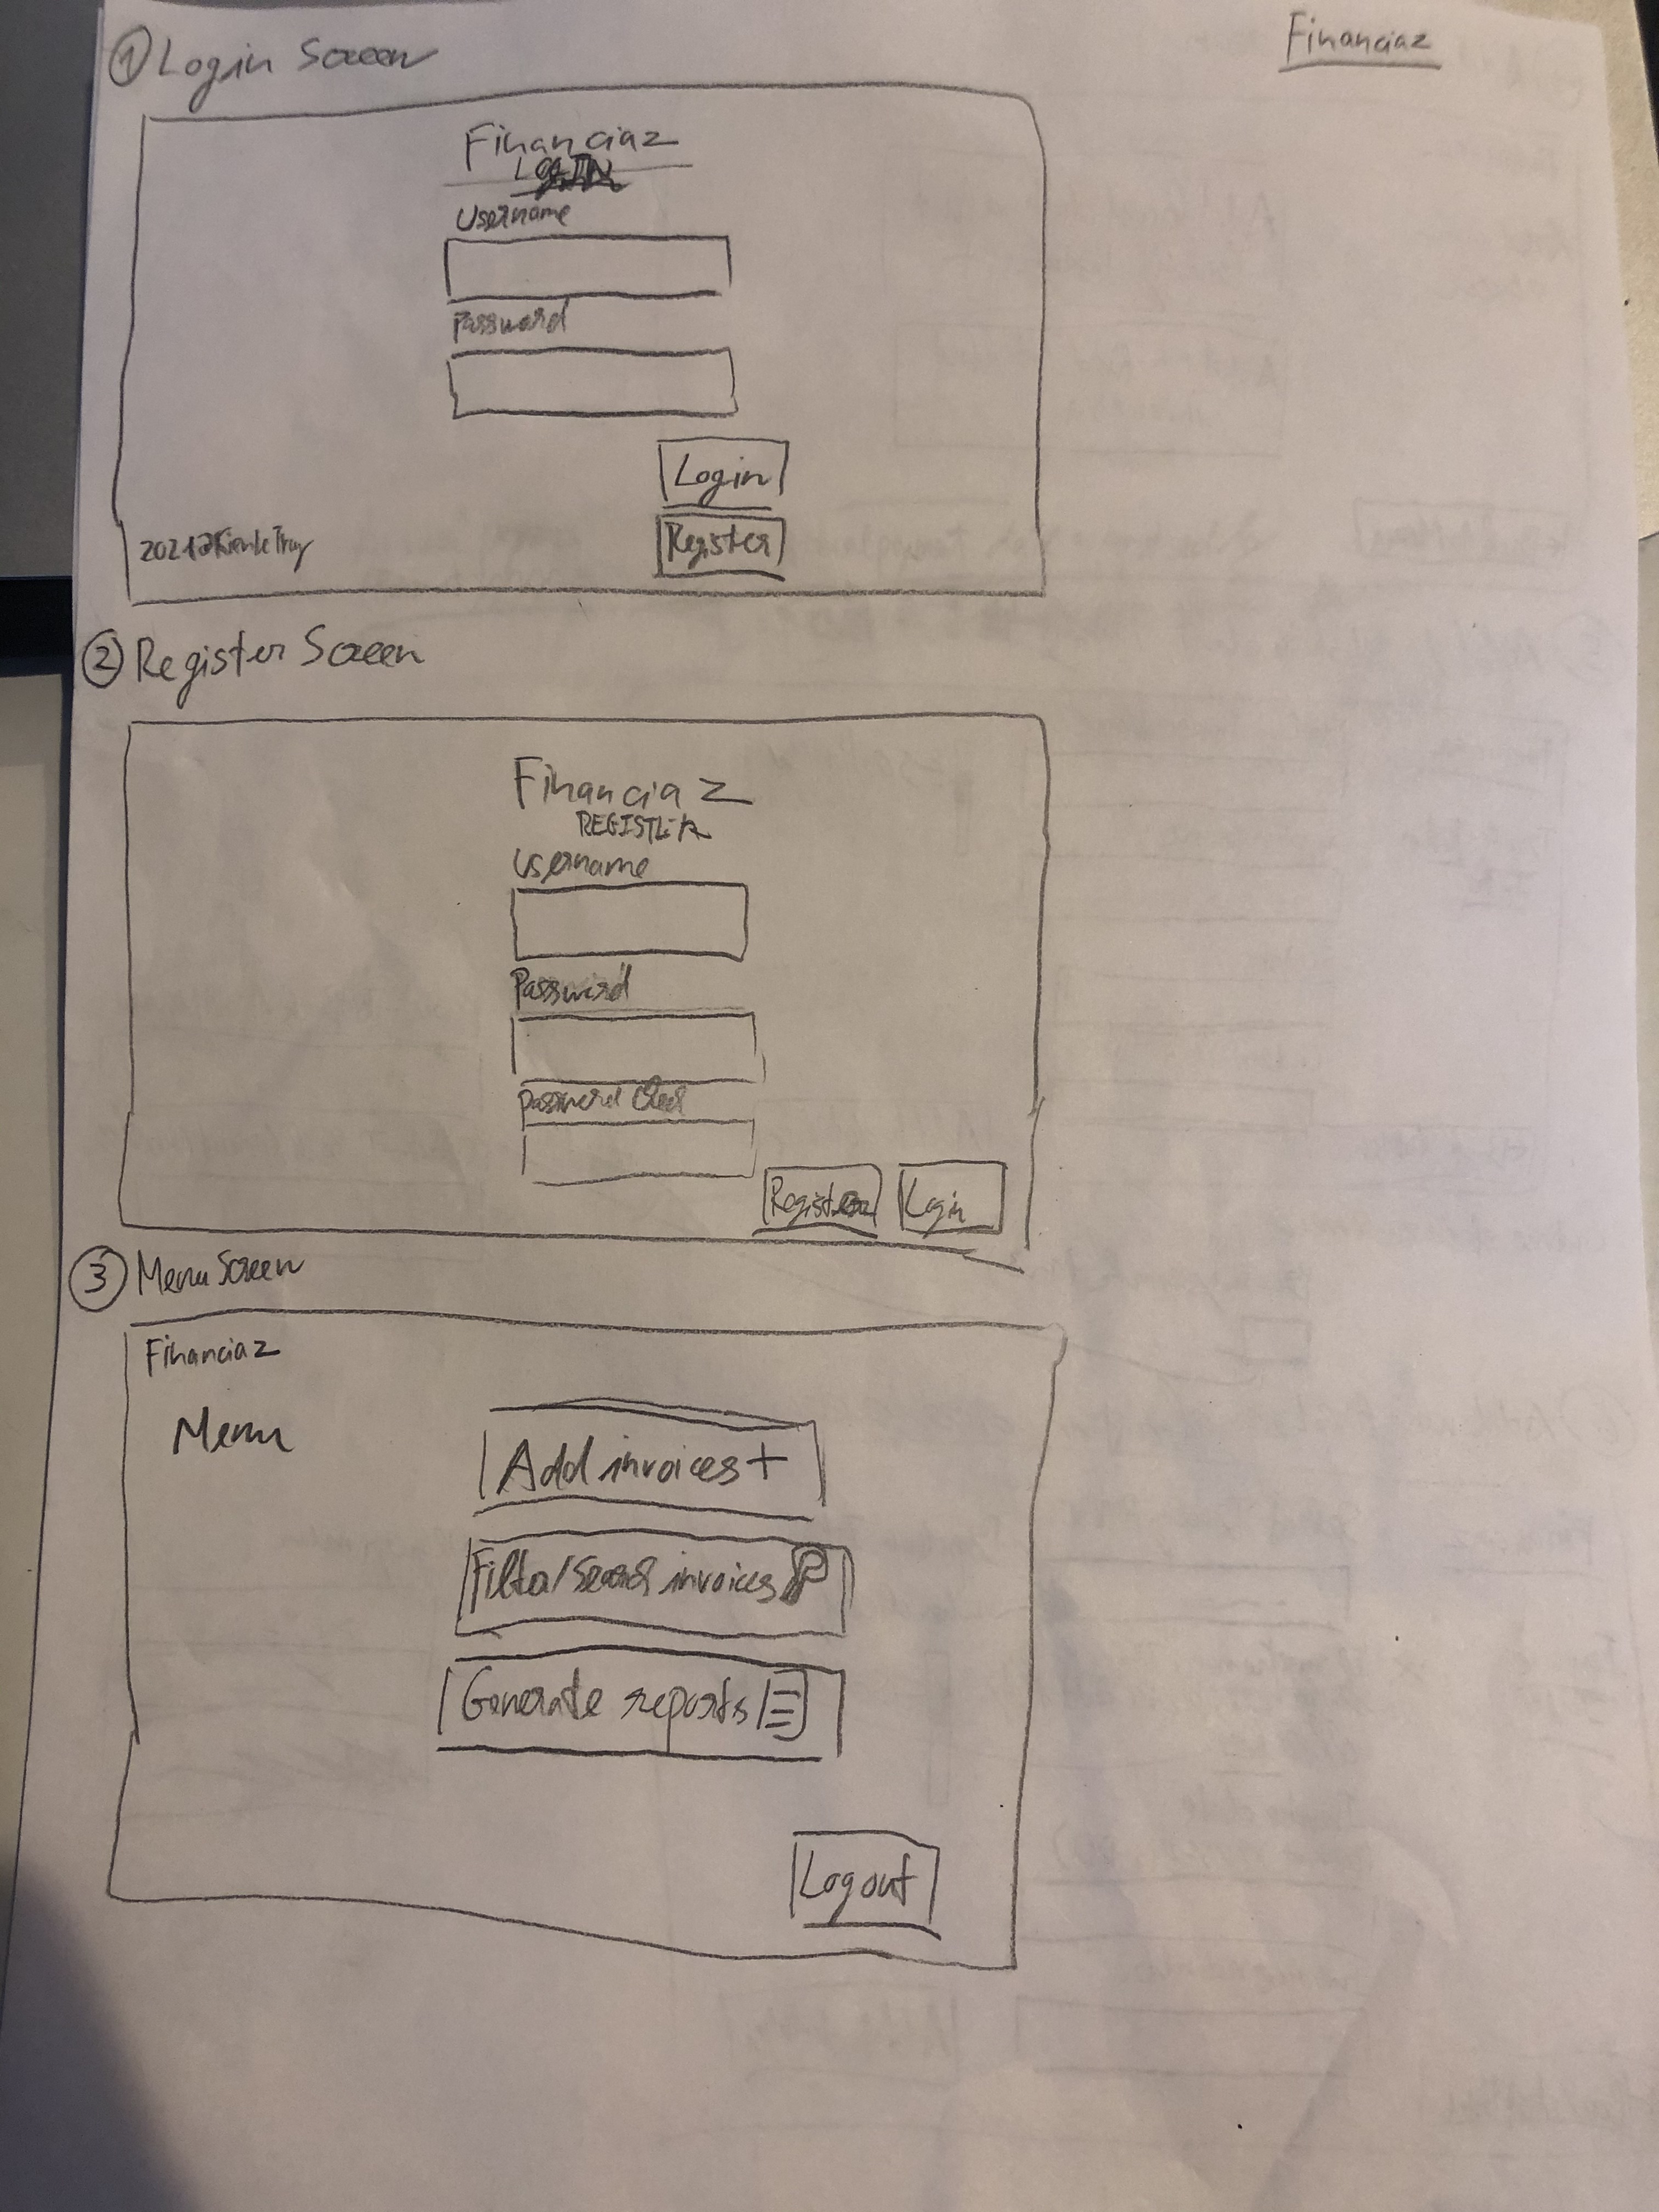 Financiaz
① Login Screen
Financiaz
LOGIN
Username
Password
Login
Register
2021
② Register Screen
Financiaz
REGISTER
Username
Password
Password
Register
Login
③ Menu Screen
Financiaz
Menu
Add invoices +
Filter/Search invoices
Generate reports
Logout